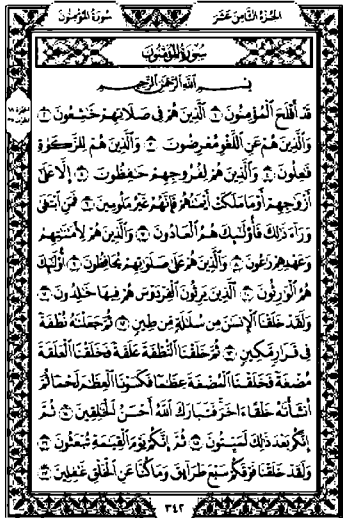 الجزء الثامن عشر
سورة المؤمنون
سورة المؤمنون
بسم الله الرحمن الرحيم
قَدْ أَفْلَحَ الْمُؤْمِنُونَ الَّذِينَ هُمْ فِي صَلَاتِهِمْ خَٰشِعُونَ
وَالَّذِينَ هُمْ عَنِ اللَّغْوِ مُعْرِضُونَ وَالَّذِينَ هُمْ لِلزَّكَوٰةِ
فَٰعِلُونَ وَالَّذِينَ هُمْ لِفُرُوجِهِمْ حَٰفِظُونَ إِلَّا عَلَىٰ
أَزْوَٰجِهِمْ أَوْ مَا مَلَكَتْ أَيْمَٰنُهُمْ فَإِنَّهُمْ غَيْرُ مَلُومِينَ فَمَنِ ابْتَغَىٰ
وَرَآءَ ذَٰلِكَ فَأُولَٰٓئِكَ هُمُ الْعَادُونَ وَالَّذِينَ هُمْ لِأَمَٰنَٰتِهِمْ
وَعَهْدِهِمْ رَٰعُونَ وَالَّذِينَ هُمْ عَلَىٰ صَلَوَٰتِهِمْ يُحَافِظُونَ أُولَٰٓئِكَ
هُمُ الْوَٰرِثُونَ الَّذِينَ يَرِثُونَ الْفِرْدَوْسَ هُمْ فِيهَا خَٰلِدُونَ
وَلَقَدْ خَلَقْنَا الْإِنسَٰنَ مِن سُلَٰلَةٍ مِّن طِينٍ ثُمَّ جَعَلْنَٰهُ نُطْفَةً
فِي قَرَارٍ مَّكِينٍ ثُمَّ خَلَقْنَا النُّطْفَةَ عَلَقَةً فَخَلَقْنَا الْعَلَقَةَ
مُضْغَةً فَخَلَقْنَا الْمُضْغَةَ عِظَٰمًا فَكَسَوْنَا الْعِظَٰمَ لَحْمًا ثُمَّ
أَنشَأْنَٰهُ خَلْقًا ءَاخَرَ فَتَبَارَكَ اللَّهُ أَحْسَنُ الْخَٰلِقِينَ ثُمَّ
إِنَّكُم بَعْدَ ذَٰلِكَ لَمَيِّتُونَ ثُمَّ إِنَّكُمْ يَوْمَ الْقِيَٰمَةِ تُبْعَثُونَ
وَلَقَدْ خَلَقْنَا فَوْقَكُمْ سَبْعَ طَرَآئِقَ وَمَا كُنَّا عَنِ الْخَلْقِ غَٰفِلِينَ
٣٤٢